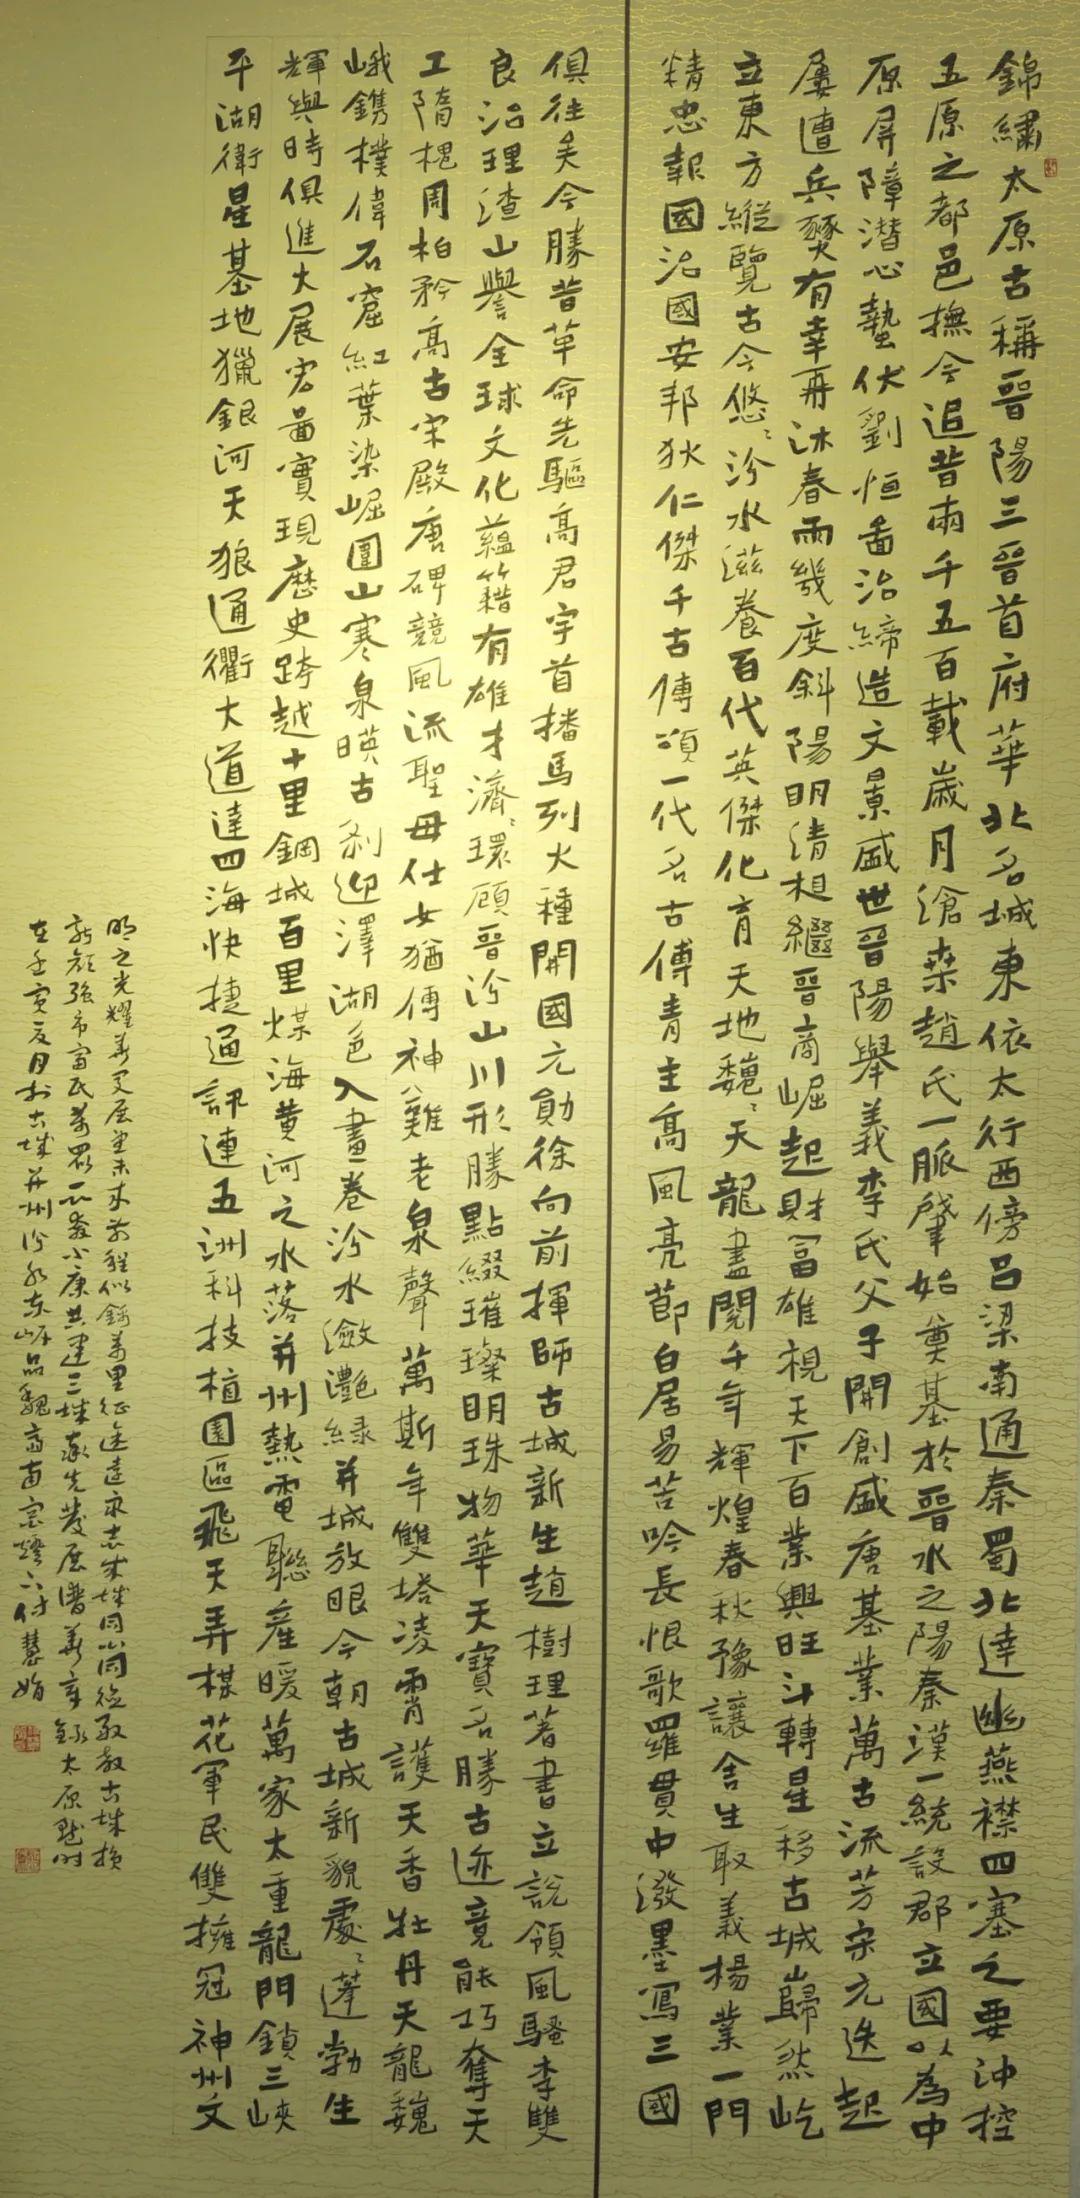 錦繡太原古稱晉陽三晉首府華北名城東依太行西傍呂梁南通秦蜀北達幽燕襟四塞之要沖控
五原之都邑撫今追昔兩千五百載歲月滄桑趙氏一脈肇始奠基於晉水之陽秦漢一統設郡立國以為中
原屏障潛心蟄伏劉恒啚治締造文景盛世晉陽舉義李氏父子開創盛唐基業萬古流芳宋元迭起
屢遭兵燹有幸再沐春雨幾度斜陽明清相繼晉商崛起財富雄視天下百業興旺斗轉星移古城巋然屹
立東方縱覽古今悠〻汾水滋養百代英傑化育天地巍〻天龍盡閱千年輝煌春秋豫讓舍生取義楊業一門
精忠報國治國安邦狄仁傑千古傳頌一代名古傅青主高風亮節白居易苦吟長恨歌羅貫中潑墨寫三國
俱往矣今勝昔革命先驅高君宇首播馬列火種開國元勛徐向前揮師古城新生趙樹理著書立說領風騷李雙
良治理渣山譽全球文化蘊籍有雄才濟〻環顧晉汾山川形勝點綴璀璨明珠物華天寶名勝古迹竟能巧奪天
工隋槐周柏矜高古宋殿唐碑競風流聖母仕女猶傳神難老泉聲萬斯年雙塔凌霄護天香牡丹天龍巍
峨鐫樸偉石窟紅葉染崛圍山寒泉暎古剎迎澤湖色入畫卷汾水瀲灩綠并城放眼今朝古城新貌處〻蓬勃生
輝與時俱進大展宏啚實現歷史跨越十里鋼城百里煤海黄河之水落并州熱電聯產暖萬家太重龍門鎖三峽
平湖衛星基地獵銀河天狼通衢大道達四海快捷通訊連五洲科技植園區飛天弄楳花軍民雙擁冠神州文
明之光耀華夏展望未來前程似錦萬里征途遠衆志成城同心同德致教古城換
新顏強市富民萬眾一心奔小康共建三城率先發展譜華章錄太原賦時
在壬寅夏月於古城并州汾水東岸品魏齋